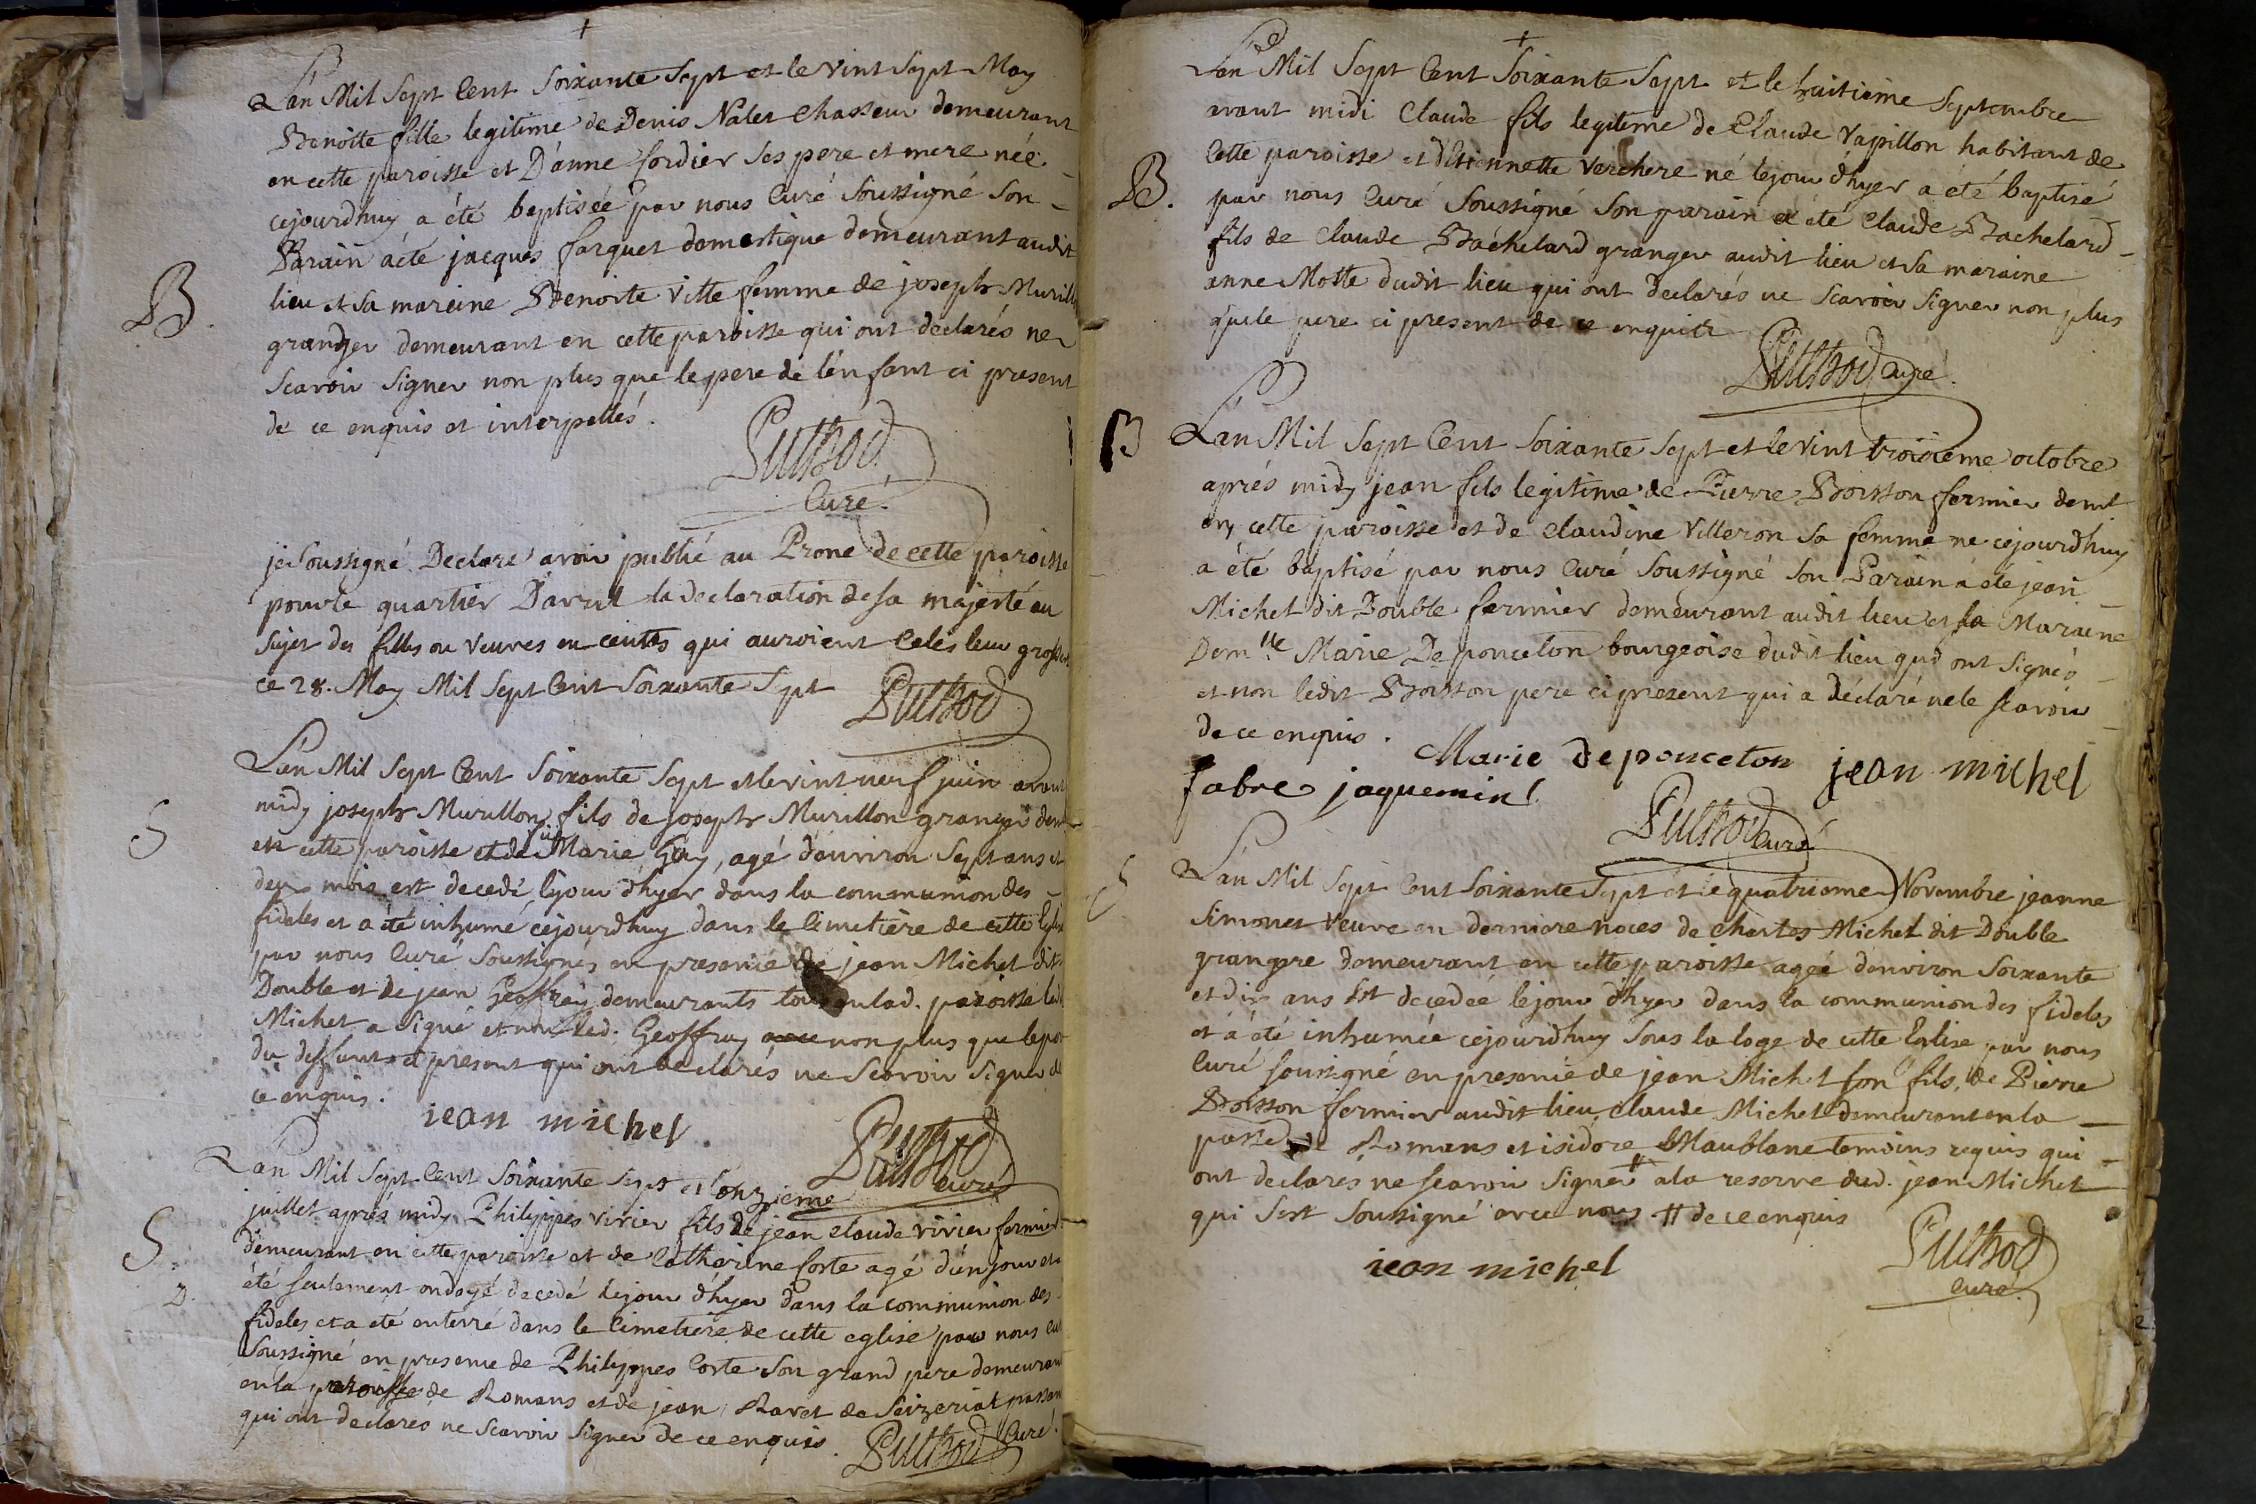 L'an Mil Sept Cent Soixante Sept et le vint Sept May
Benoitte fille legitime de Denis Nalet chasseur demeurant
en cette paroisse et D'anne fordier ses pere et mere née
cejourdhuy a été baptisée par nous Curé Soussigné Son
Parain a été jacques farguet domestique demeurant audit
B.
lieu et sa maraine Benoite vitte femme de joseph Murill
granger demeurant en cette paroisse qui ont declarés ne
scavoir signer non plus que le pere de l'enfant ci present
de ce enquis et interpellés.
Puthod
Curé.
je Soussigné Declare avoir publié au Prone de cette paroisse
pour le quartier D'avril la declaration de sa majesté au
Sujet des filles ou veuves enceintes qui auroient celés leur grosse
ce 28. May Mil Sept Cent Soixante Sept Puthod
L'an Mil Sept Cent Soixante Sept et le vint neuf juin avant
S
midy joseph Murillon fils de joseph Murillon granger dem
en cette paroisse et de fuë Marie Guy, agé d'environ Sept ans et
deux mois est decedé le jour d'hyer dans la communion des
fideles et a été inhumé cejourdhuy dans le cimetiere de cette Eglise
par nous Curé Soussignés en presence de jean Michel dit
Double et de jean Geoffray demeurants tous en lad. paroisse led
Michel a signé et non led. Geoffray non plus que le per
du deffunt et present qui ont declarés ne Scavoir Signer de
ce enquis.
jean michel
Puthod
curé
L'an Mil Sept Cent Soixante Sept et l'onzieme
juillet après midy Philippes vivier fils de jean claude vivier fermier
S.
demeurant en cette paroisse et de Catherine Corte agé d'un jour et a
D.
été seulement ondoyé decedé le jour d'hyer dans la communion des
fideles et a été enterré dans le cimetiere de cette eglise par nous cur
Soussigné en presence de Philippes Corte Son grand pere demeurant
en la paroisse de Romans et de jean Ravet de Seizeriat passan
qui ont declarés ne scavoir signer de ce enquis. Puthod Curé.
L'an Mil Sept Cent Soixante Sept et le huitieme Septembre
avant midi Claude fils legitime de Claude Papillon habitant de
Cette paroisse et d'Etiennette Verchere né le jour d'hyer a été baptisé
B.
par nous Curé Soussigné Son parain a été Claude Bachelard
fils de Claude Bachelard granger audit lieu et sa maraine
anne Motte dudit lieu qui ont declarés ne scavoir signer non plus
que le pere ci present de ce enquis
Puthod curé.
B
L'an Mil Sept Cent Soixante Sept et le vint troisieme octobre
après midy jean fils legitime de Pierre Boisson fermier demt
en cette paroisse et de claudine Villeron sa femme né cejourdhuy
a été baptisé par nous Curé Soussigné Son Parain a été jean
Michel dit Double fermier demeurant audit lieu et sa Maraine
Dem.lle Marie De ponceton bourgeoise dudit lieu qui ont signés
et non ledit Boisson pere ci present qui a déclaré ne le scavoir
de ce enquis.
Marie deponceton jean michel
fabre jaquemin
Puthod curé
S
L'an Mil Sept Cent Soixante Sept et le quatrieme Novembre jeanne
Simonet veuve en derniere noces de charles Michel dit Double
grangere demeurant en cette paroisse agée d'environ Soixante
et dix ans est decedée le jour d'hyer dans la communion des fideles
et a été inhumée cejourdhuy Sous la loge de cette Eglise par nous
Curé soussigné en presence de jean Michel son fils, de Pierre
Boisson fermier audit lieu, claude Michel demeurant en la
passe de Romans et isidore Maublanc temoins requis qui
ont declarés ne scavoir signer # a la reserve dud. jean Michel
qui s'est soussigné avec nous # de ce enquis
jean michel
Puthod
curé.